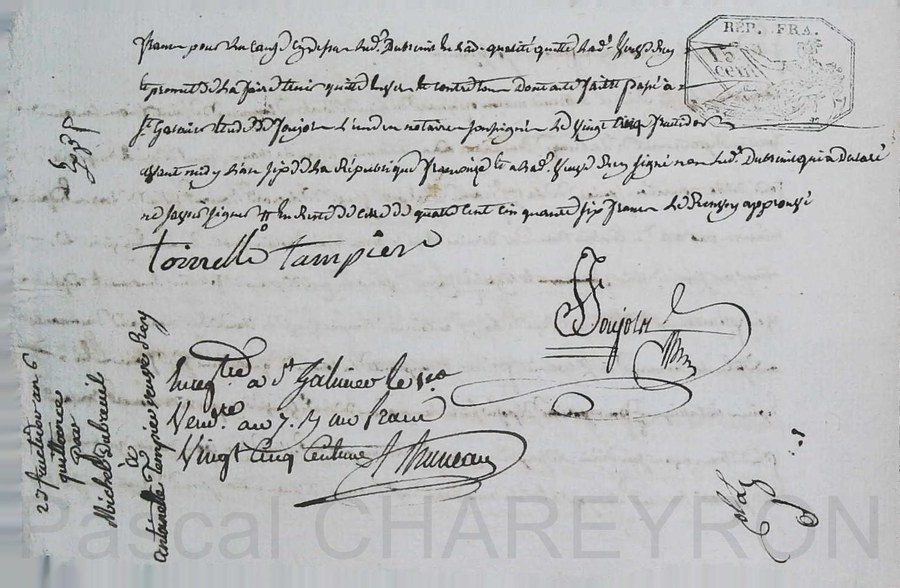 RÉP. FRA.
15
CEN.
francs pour les causes cydessus led. Dubreuil en sad. qualité quitte lad. Veuve Rey
et promet de la faire tenir quitte envers et contre tous dont acte fait & passé à
St Galmier étude de Poujols l'un des notaires soussigné le vingt cinq fructidor
avant midy l'an six de la République française et a lad. Veuve Rey signé non led. Dubreuil qui a déclaré
ne savoir signer
de quatre cent cinquante six francs approuvé
toinette tampiere
Poujols
Enregtré à St Galmier le 1er
Vende. an 7. Un franc
Vingt Cinq Centimes
25 fructidor an 6
quittance
Par
Michel Dubreuil
à
antoinette Tampier veuve Rey
Pascal CHAREYRON